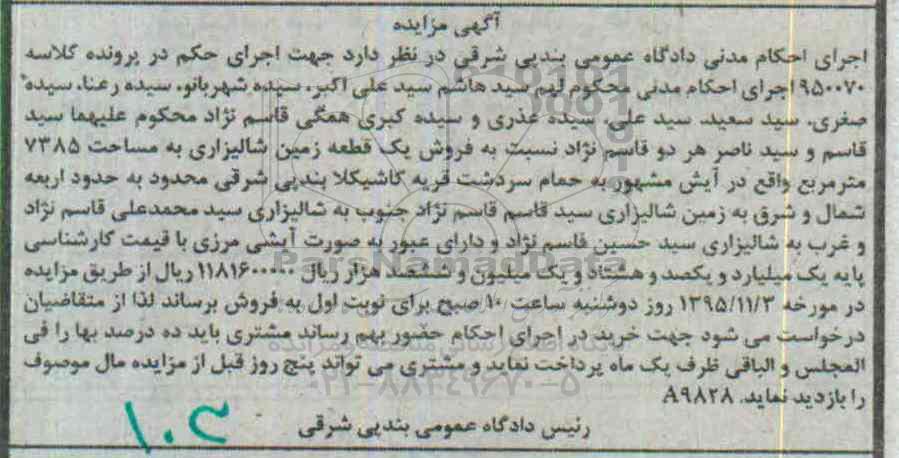 آگهی مزایده
اجرای احکام مدنی دادگاه عمومی بندپی شرقی در نظر دارد جهت اجرای حکم در پرونده کلاسه
۹۵۰۰۷۰ اجرای احکام مدنی محکوم لهم سید هاشم سید علی اکبر، سیده شهربانو، سیده رعنا، سیده
صغری، سید سعید، سید علی، سیده عذری و سیده کبری همگی قاسم نژاد محکوم علیهما سید
قاسم و سید ناصر هر دو قاسم نژاد نسبت به فروش یک قطعه زمین شالیزاری به مساحت ۷۳۸۵
مترمربع واقع در آیش مشهور به حمام سردشت قریه کاشیکلا بندپی شرقی محدود به حدود اربعه
شمال و شرق به زمین شالیزاری سید قاسم قاسم نژاد جنوب به شالیزاری سید محمدعلی قاسم نژاد
و غرب به شالیزاری سید حسین قاسم نژاد و دارای عبور به صورت آیشی مرزی با قیمت کارشناسی
پایه یک میلیارد و یکصد و هشتاد و یک میلیون و ششصد هزار ریال ۱۱۸۱۶۰۰۰۰۰ ریال از طریق مزایده
در مورخه ۱۳۹۵/۱۱/۳ روز دوشنبه ساعت ۱۰ صبح برای نوبت اول به فروش برساند لذا از متقاضیان
درخواست می شود جهت خرید در اجرای احکام حضور بهم رساند مشتری باید ده درصد بها را فی
المجلس و الباقی ظرف یک ماه پرداخت نماید و مشتری می تواند پنج روز قبل از مزایده مال موصوف
را بازدید نماید. A۹۸۲۸
رئیس دادگاه عمومی بندپی شرقی
ParsNamadData
۰۲۱-۸۸۳۴۹۶۷۰-۵